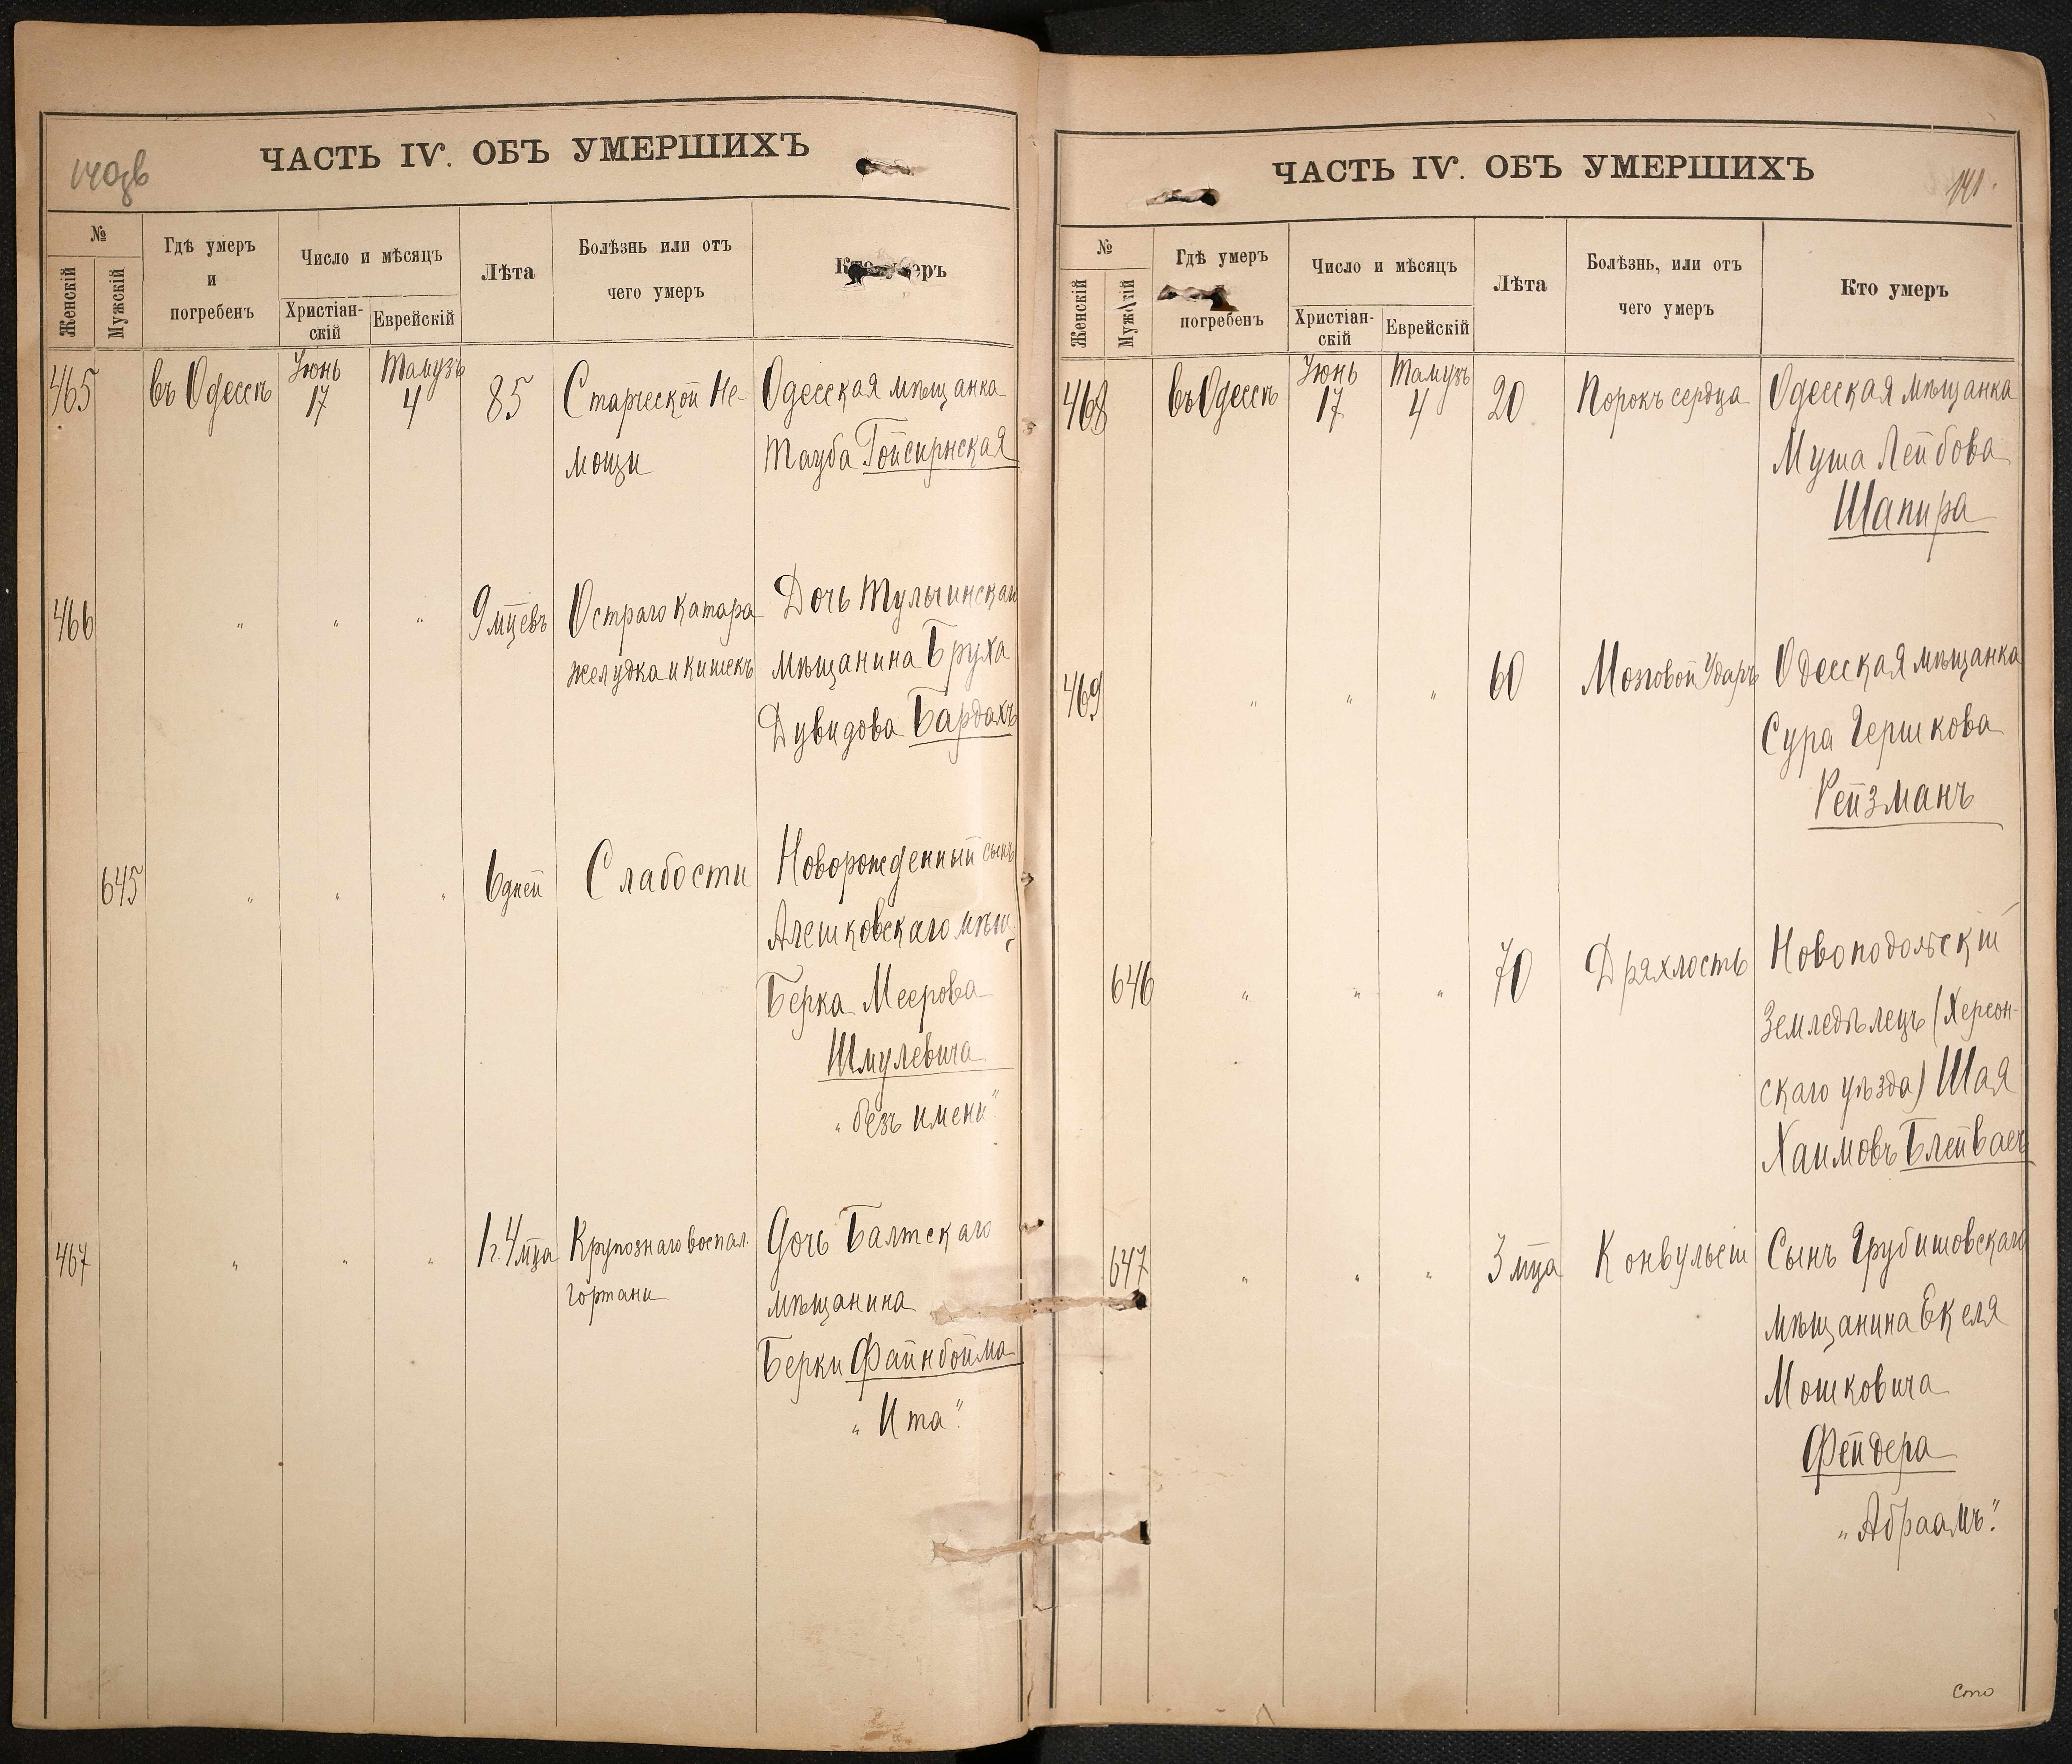 140зв
ЧАСТЬ IV. ОБЪ УМЕРШИХЪ
№
Женскій
Мужскій
Гдѣ умеръ
и
погребенъ
Число и мѣсяцъ
Христіан-
скій
Еврейскій
Лѣта
Болѣзнь или отъ
чего умеръ
465
въ Одессѣ
Іюнь
17
Тамузъ
4
85
Старческой Не-
мощи
Одесская мѣщанка
Тауба Гойсирнская
466
"
"
"
9 мцевъ
Остраго катара
желудка и кишекъ
Дочь Тульчинскаго
мѣщанина Бруха
Дувидова Бардахъ
645
"
"
"
6 дней
Слабости
Новорожденный сынъ
Алешковскаго мѣщ.
Берка Меерова
Шмулевича
"безъ имени".
467
"
"
"
1 г. 4 мца
Крупознаго воспал.
гортани
Дочь Балтскаго
мѣщанина
Берки Файнбойма
"Ита".
ЧАСТЬ IV. ОБЪ УМЕРШИХЪ
141.
№
Женскій
Мужскій
Гдѣ умеръ
погребенъ
Число и мѣсяцъ
Христіан-
скій
Еврейскій
Лѣта
Болѣзнь, или отъ
чего умеръ
Кто умеръ
468
въ Одессѣ
Іюнь
17
Тамузъ
4
20
Порокъ сердца
Одесская мѣщанка
Муша Лейбова
Шапира
469
"
"
"
60
Мозговой Ударъ
Одесская мѣщанка
Сура Гершкова
Рейзманъ
646
"
"
"
70
Дряхлость
Новоподольскій
Земледѣлецъ (Херсон-
скаго уѣзда) Шая
Хаимовъ Блейвасъ
647
"
"
"
3 мца
Конвульсіи
Сынъ Грубишовскаго
мѣщанина Екеля
Мошковича
Фейдера
"Абраамъ".